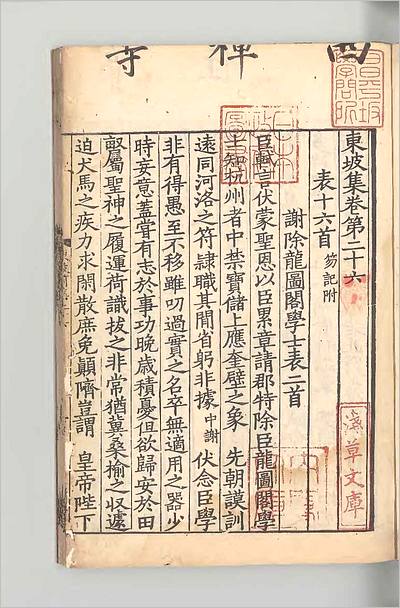 西禪寺
昌平坂學問所
日本政府圖書
東坡集卷第二十六
表十六首 笏記附
謝除龍圖閣學士表二首
臣軾言伏蒙聖恩以臣累章請郡特除臣龍圖閣學
士知杭州者中禁寶儲上應奎壁之象 先朝謨訓
遠同河洛之符隷職其間省躬非據中謝 伏念臣學
非有得愚至不移雖叨過實之名卒無適用之器少
時妄意蓋甞有志於事功晚歳積憂但欲歸安於田
畝屬聖神之履運荷識拔之非常猶冀桑榆之收遽
迫犬馬之疾力求閑散庶免顛隮豈謂 皇帝陛下
淺草文庫